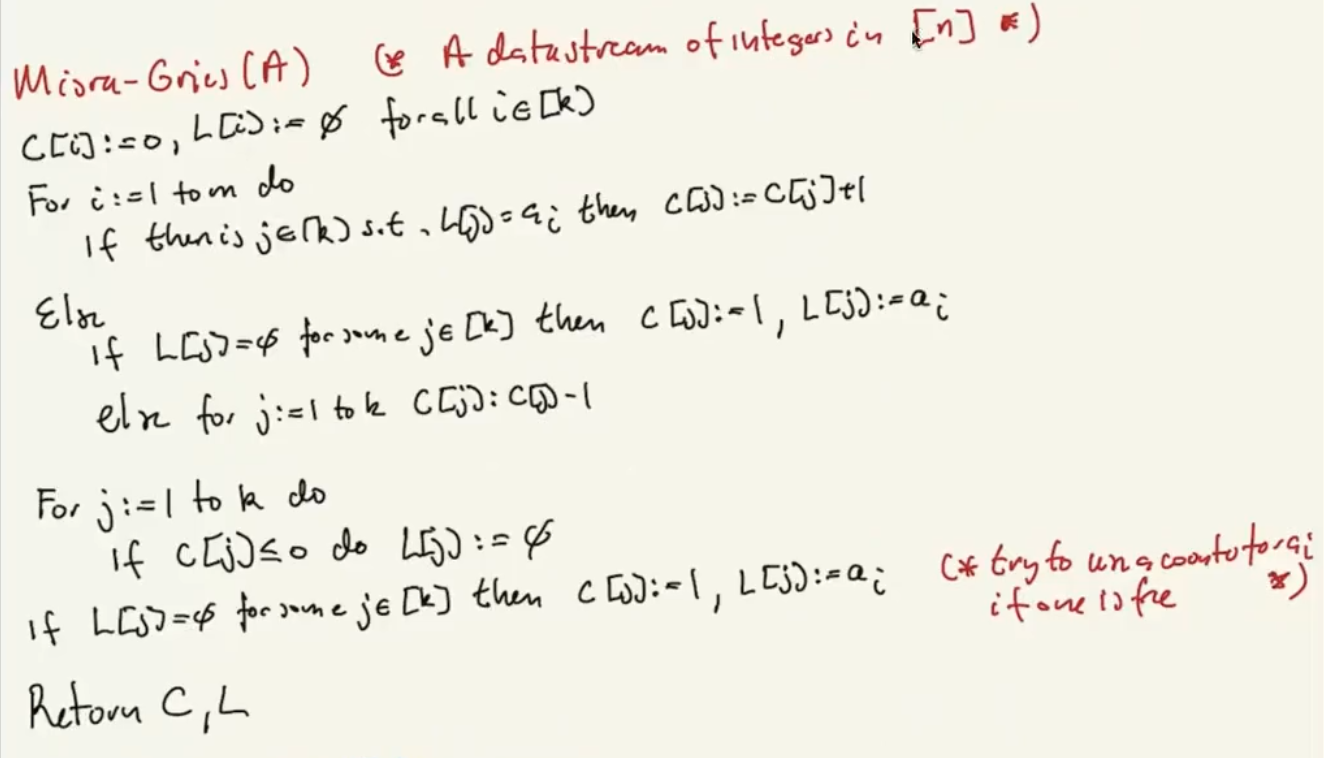 Misra-Gries (A) (* A datastream of integers in [n] *)
C[i]:=0, L[i]:=∅ for all i∈[k]
For i:=1 to m do
If there is j∈[k] s.t. L[j]=ai then C[j]:=C[j]+1
Else
If L[j]=∅ for some j∈[k] then C[j]:=1, L[j]:=ai
else for j:=1 to k C[j]:C[j]-1
For j:=1 to k do
If C[j]≤0 do L[j]:=∅
If L[j]=∅ for some j∈[k] then C[j]:=1, L[j]:=ai (* try to for ai
if one is free *)
Return C, L